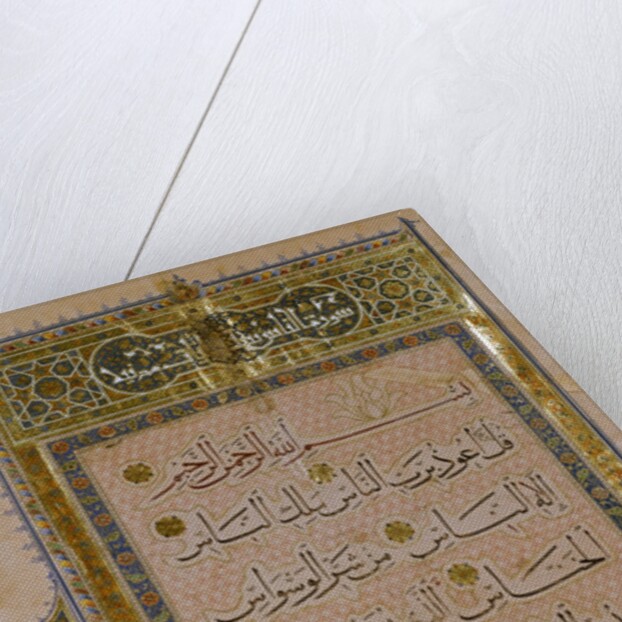 سورة الناس
بسم الله الرحمن الرحيم
قل اعوذ برب الناس ملك الناس
اله الناس من شر الوسواس
الخناس